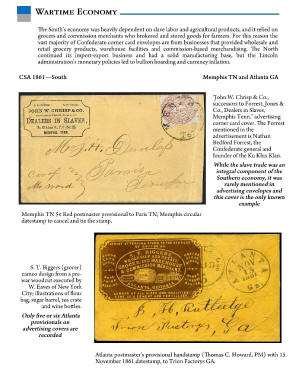 WARTIME ECONOMY
The South's economy was heavily dependent on slave labor and agricultural products, and it relied on
grocers and commission merchants who brokered and stored goods for farmers. For this reason the
vast majority of Confederate corner card envelopes are from businesses that provided wholesale and
retail grocery products, warehouse facilities and commission-based merchandising. The North
continued its import-export business and had a solid manufacturing base, but the Lincoln
administration's monetary policies led to bullion hoarding and currency inflation.
CSA 1861—South
Memphis TN and Atlanta GA
JOHN W. CHRISP & CO.,
DEALERS IN SLAVES,
MEMPHIS, TENN.
Paris
"John W. Chrisp & Co.,
successors to Forrest, Jones &
Co., Dealers in Slaves,
Memphis Tenn." advertising
corner card cover. The Forrest
mentioned in the
advertisement is Nathan
Bedford Forrest, the
Confederate general and
founder of the Ku Klux Klan.
While the slave trade was an
integral component of the
Southern economy, it was
rarely mentioned in
advertising envelopes and
this cover is the only known
example
Memphis TN 5¢ Red postmaster provisional to Paris TN, Memphis circular
datestamp to cancel and tie the stamp.
S. T. Biggers (grocer)
cameo design from a pre-
war woodcut executed by
W. Eaves of New York
City; illustrations of flour
bag, sugar barrel, tea crate
and wine bottles.
Only five or six Atlanta
provisionals on
advertising covers are
recorded
ATLANTA, GEORGIA
Rutledge
Trion Factory, Ga
Atlanta postmaster's provisional handstamp (Thomas C. Howard, PM) with 15
November 1861 datestamp, to Trion Factorys GA.